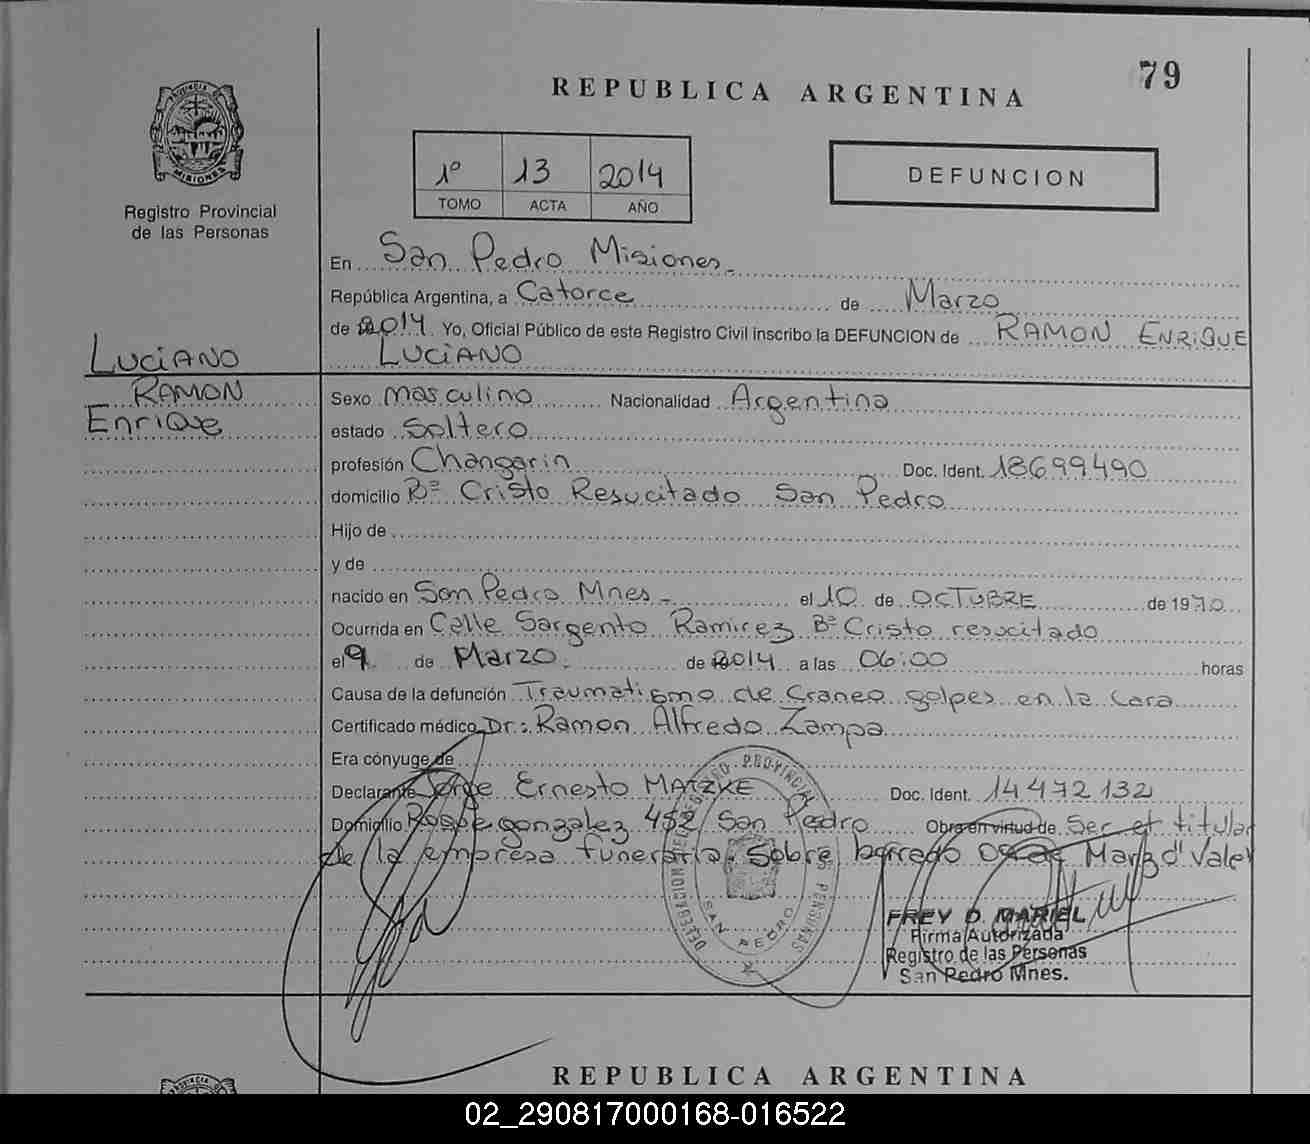 79
REPUBLICA ARGENTINA
1º 13 2014
TOMO ACTA AÑO
DEFUNCION
MISIONES
Registro Provincial
de las Personas
En San Pedro Misiones
República Argentina, a Catorce de Marzo
de 2014 Yo, Oficial Público de este Registro Civil inscribo la DEFUNCION de RAMON ENRIQUE
LUCIANO
LUCIANO
RAMON
Enrique
Sexo masculino Nacionalidad Argentina
estado Soltero
profesión Changarin Doc. Ident. 18699490
domicilio Bº Cristo Resucitado San Pedro
Hijo de
y de
nacido en San Pedro Mnes el 10 de OCTUBRE de 1970
Ocurrida en Calle Sargento Ramirez Bº Cristo resucitado
el 9 de Marzo de 2014 a las 06:00 horas
Causa de la defunción Traumatismo de Craneo golpes en la cara
Certificado médico Dr: Ramon Alfredo Zampa
Era cónyuge de
Declarante Jorge Ernesto MATZKE Doc. Ident. 14472132
Domicilio Roque gonzalez 452 San Pedro Obra en virtud de Ser el titular
de la empresa funeraria. Sobre borrado Marzo" Vale
DELEGACION REGISTRO PROVINCIAL PERSONAS
SAN PEDRO
FREY D. MARIEL
Firma Autorizada
Registro de las Personas
San Pedro Mnes.
REPUBLICA ARGENTINA
02_290817000168-016522